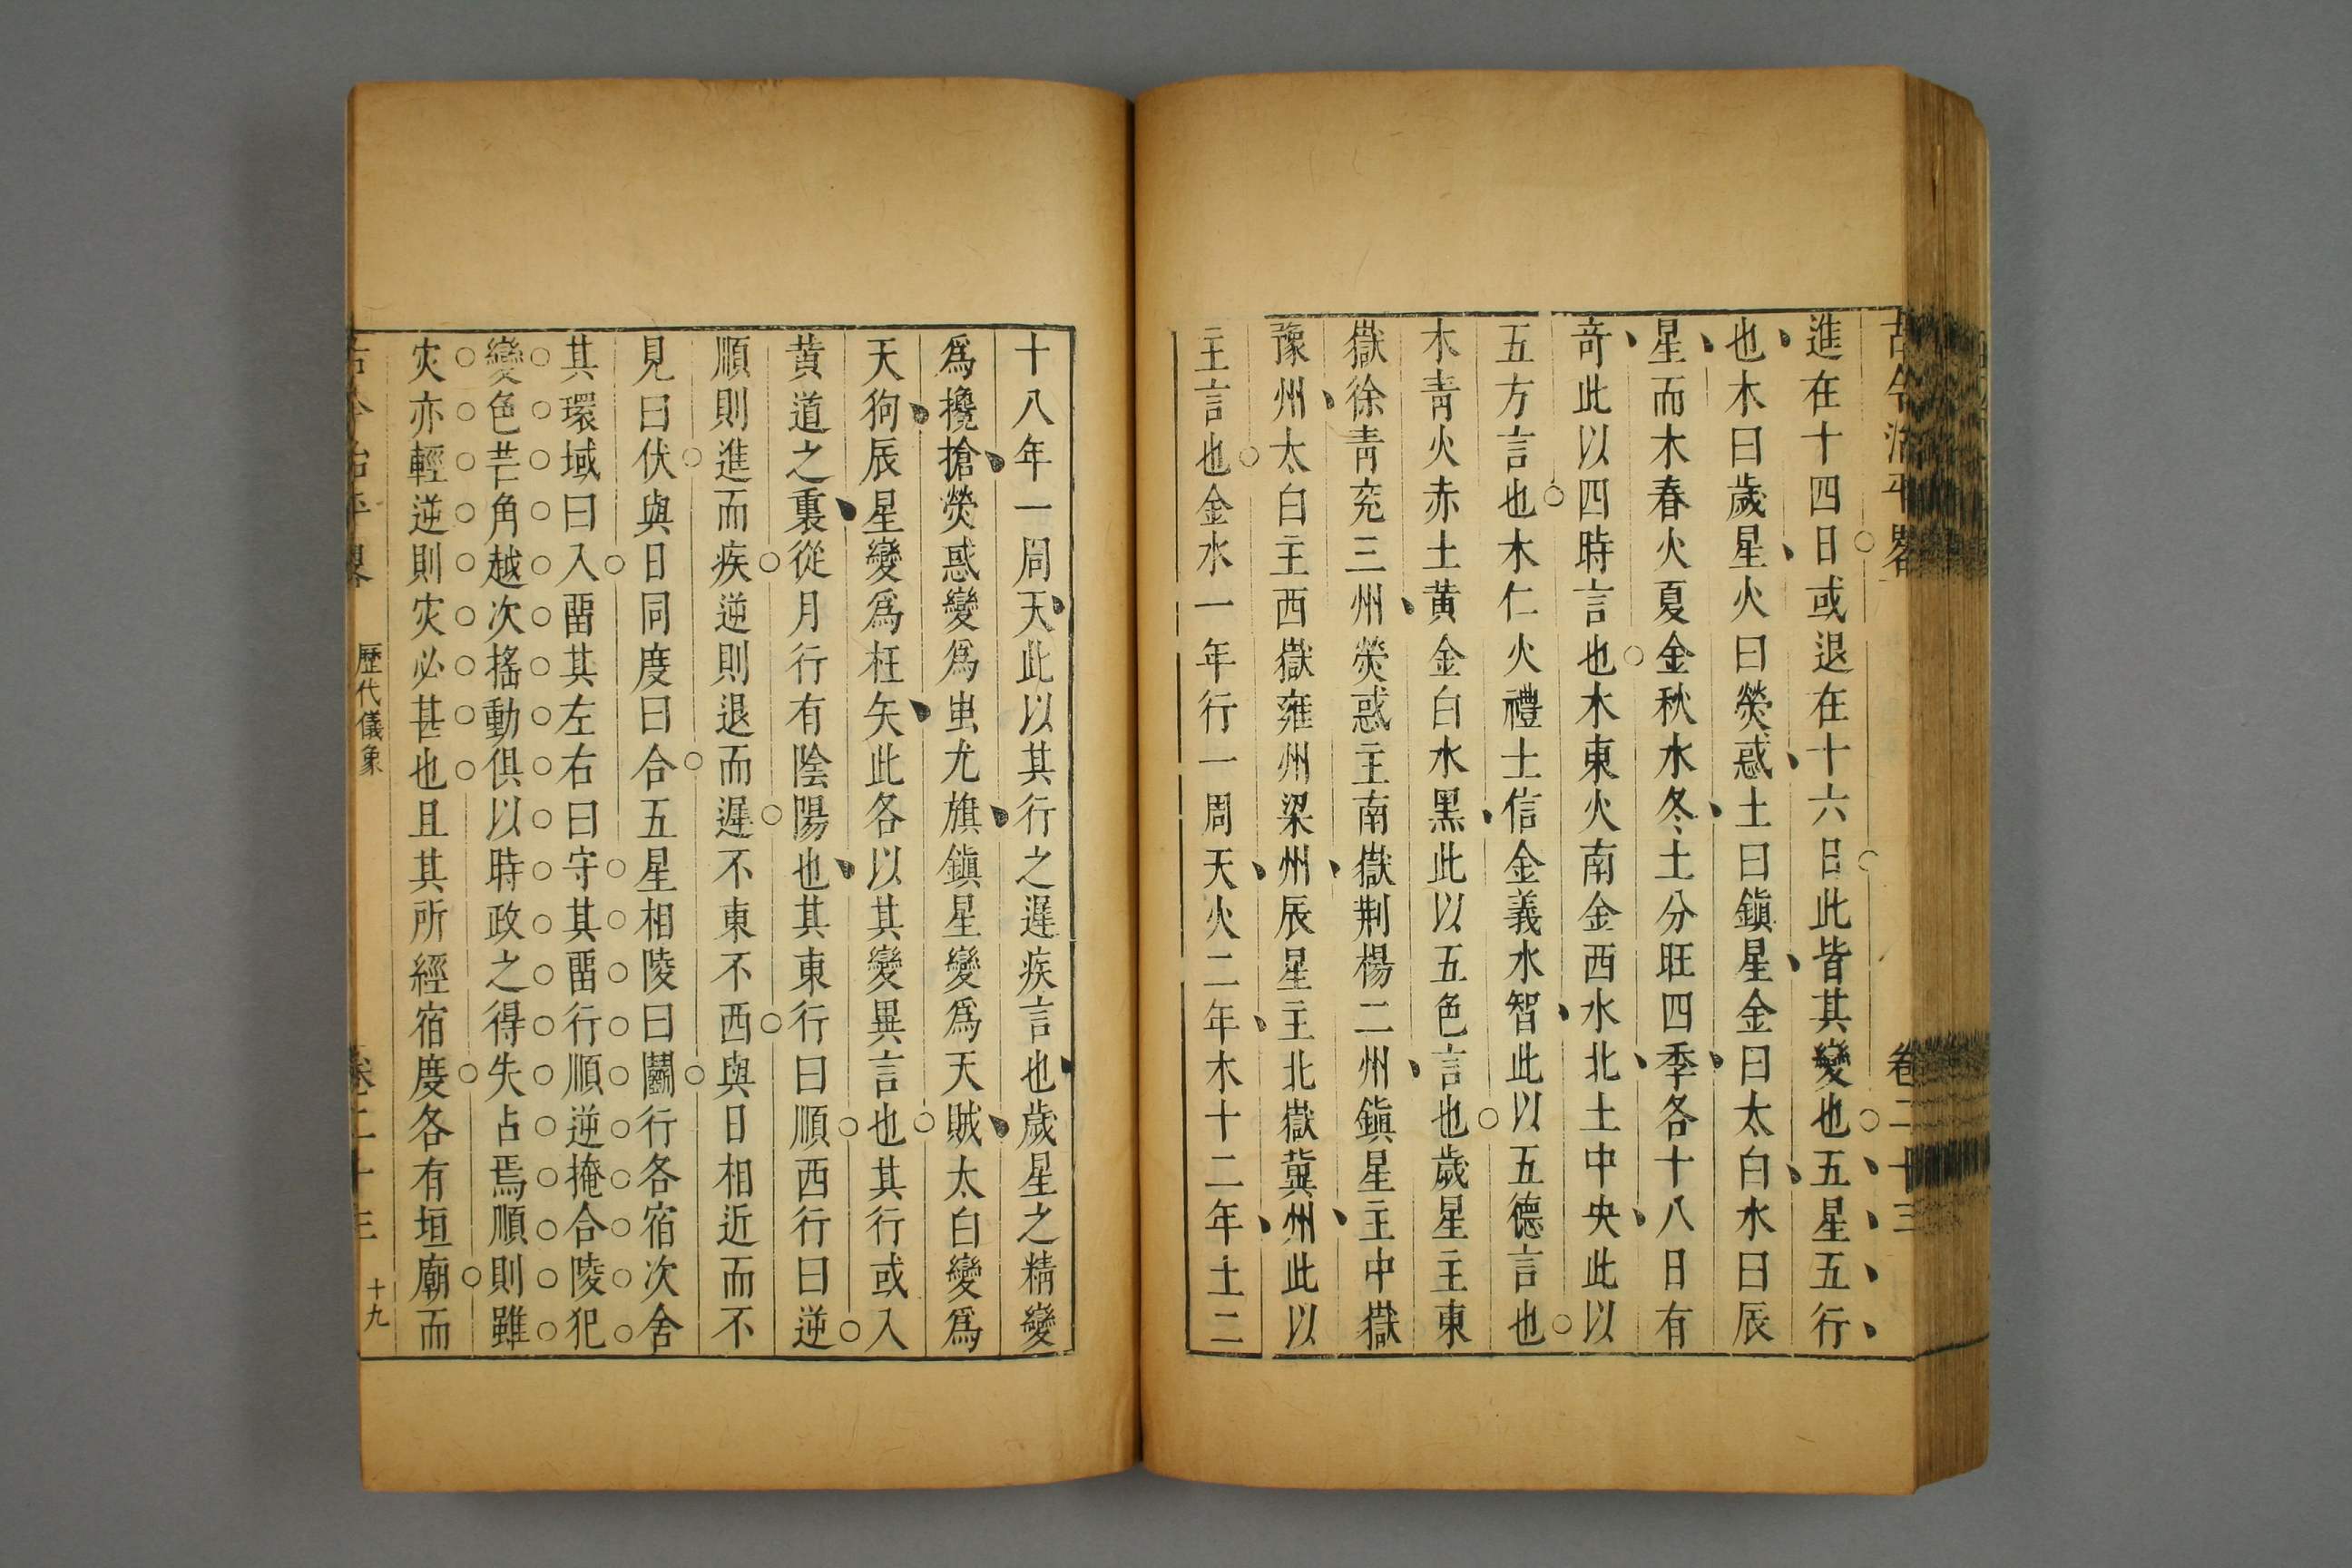 古今治平畧 卷二十三
進在十四日或退在十六日此皆其變也五星五行
也木曰歲星火曰熒惑土曰鎭星金曰太白水曰辰
星而木春火夏金秋水冬土分旺四季各十八日有
竒此以四時言也木東火南金西水北土中央此以
五方言也木仁火禮土信金義水智此以五德言也
木靑火赤土黃金白水黑此以五色言也歲星主東
嶽徐靑兖三州熒惑主南嶽荆楊二州鎭星主中嶽
豫州太白主西嶽雍州梁州辰星主北嶽冀州此以
主言也金水一年行一周天火二年木十二年土二
十八年一周天此以其行之遲疾言也歲星之精變
爲攙搶熒惑變爲蚩尤旗鎭星變爲天賊太白變爲
天狗辰星變爲枉矢此各以其變異言也其行或入
黃道之裏從月行有陰陽也其東行曰順西行曰逆
順則進而疾逆則退而遲不東不西與日相近而不
見曰伏與日同度曰合五星相陵曰鬭行各宿次舍
其環域曰入畱其左右曰守其畱行順逆掩合陵犯
變色芒角越次搖動俱以時政之得失占焉順則雖
灾亦輕逆則灾必甚也且其所經宿度各有垣廟而
古今治平畧 歷代儀象 卷二十三 十九